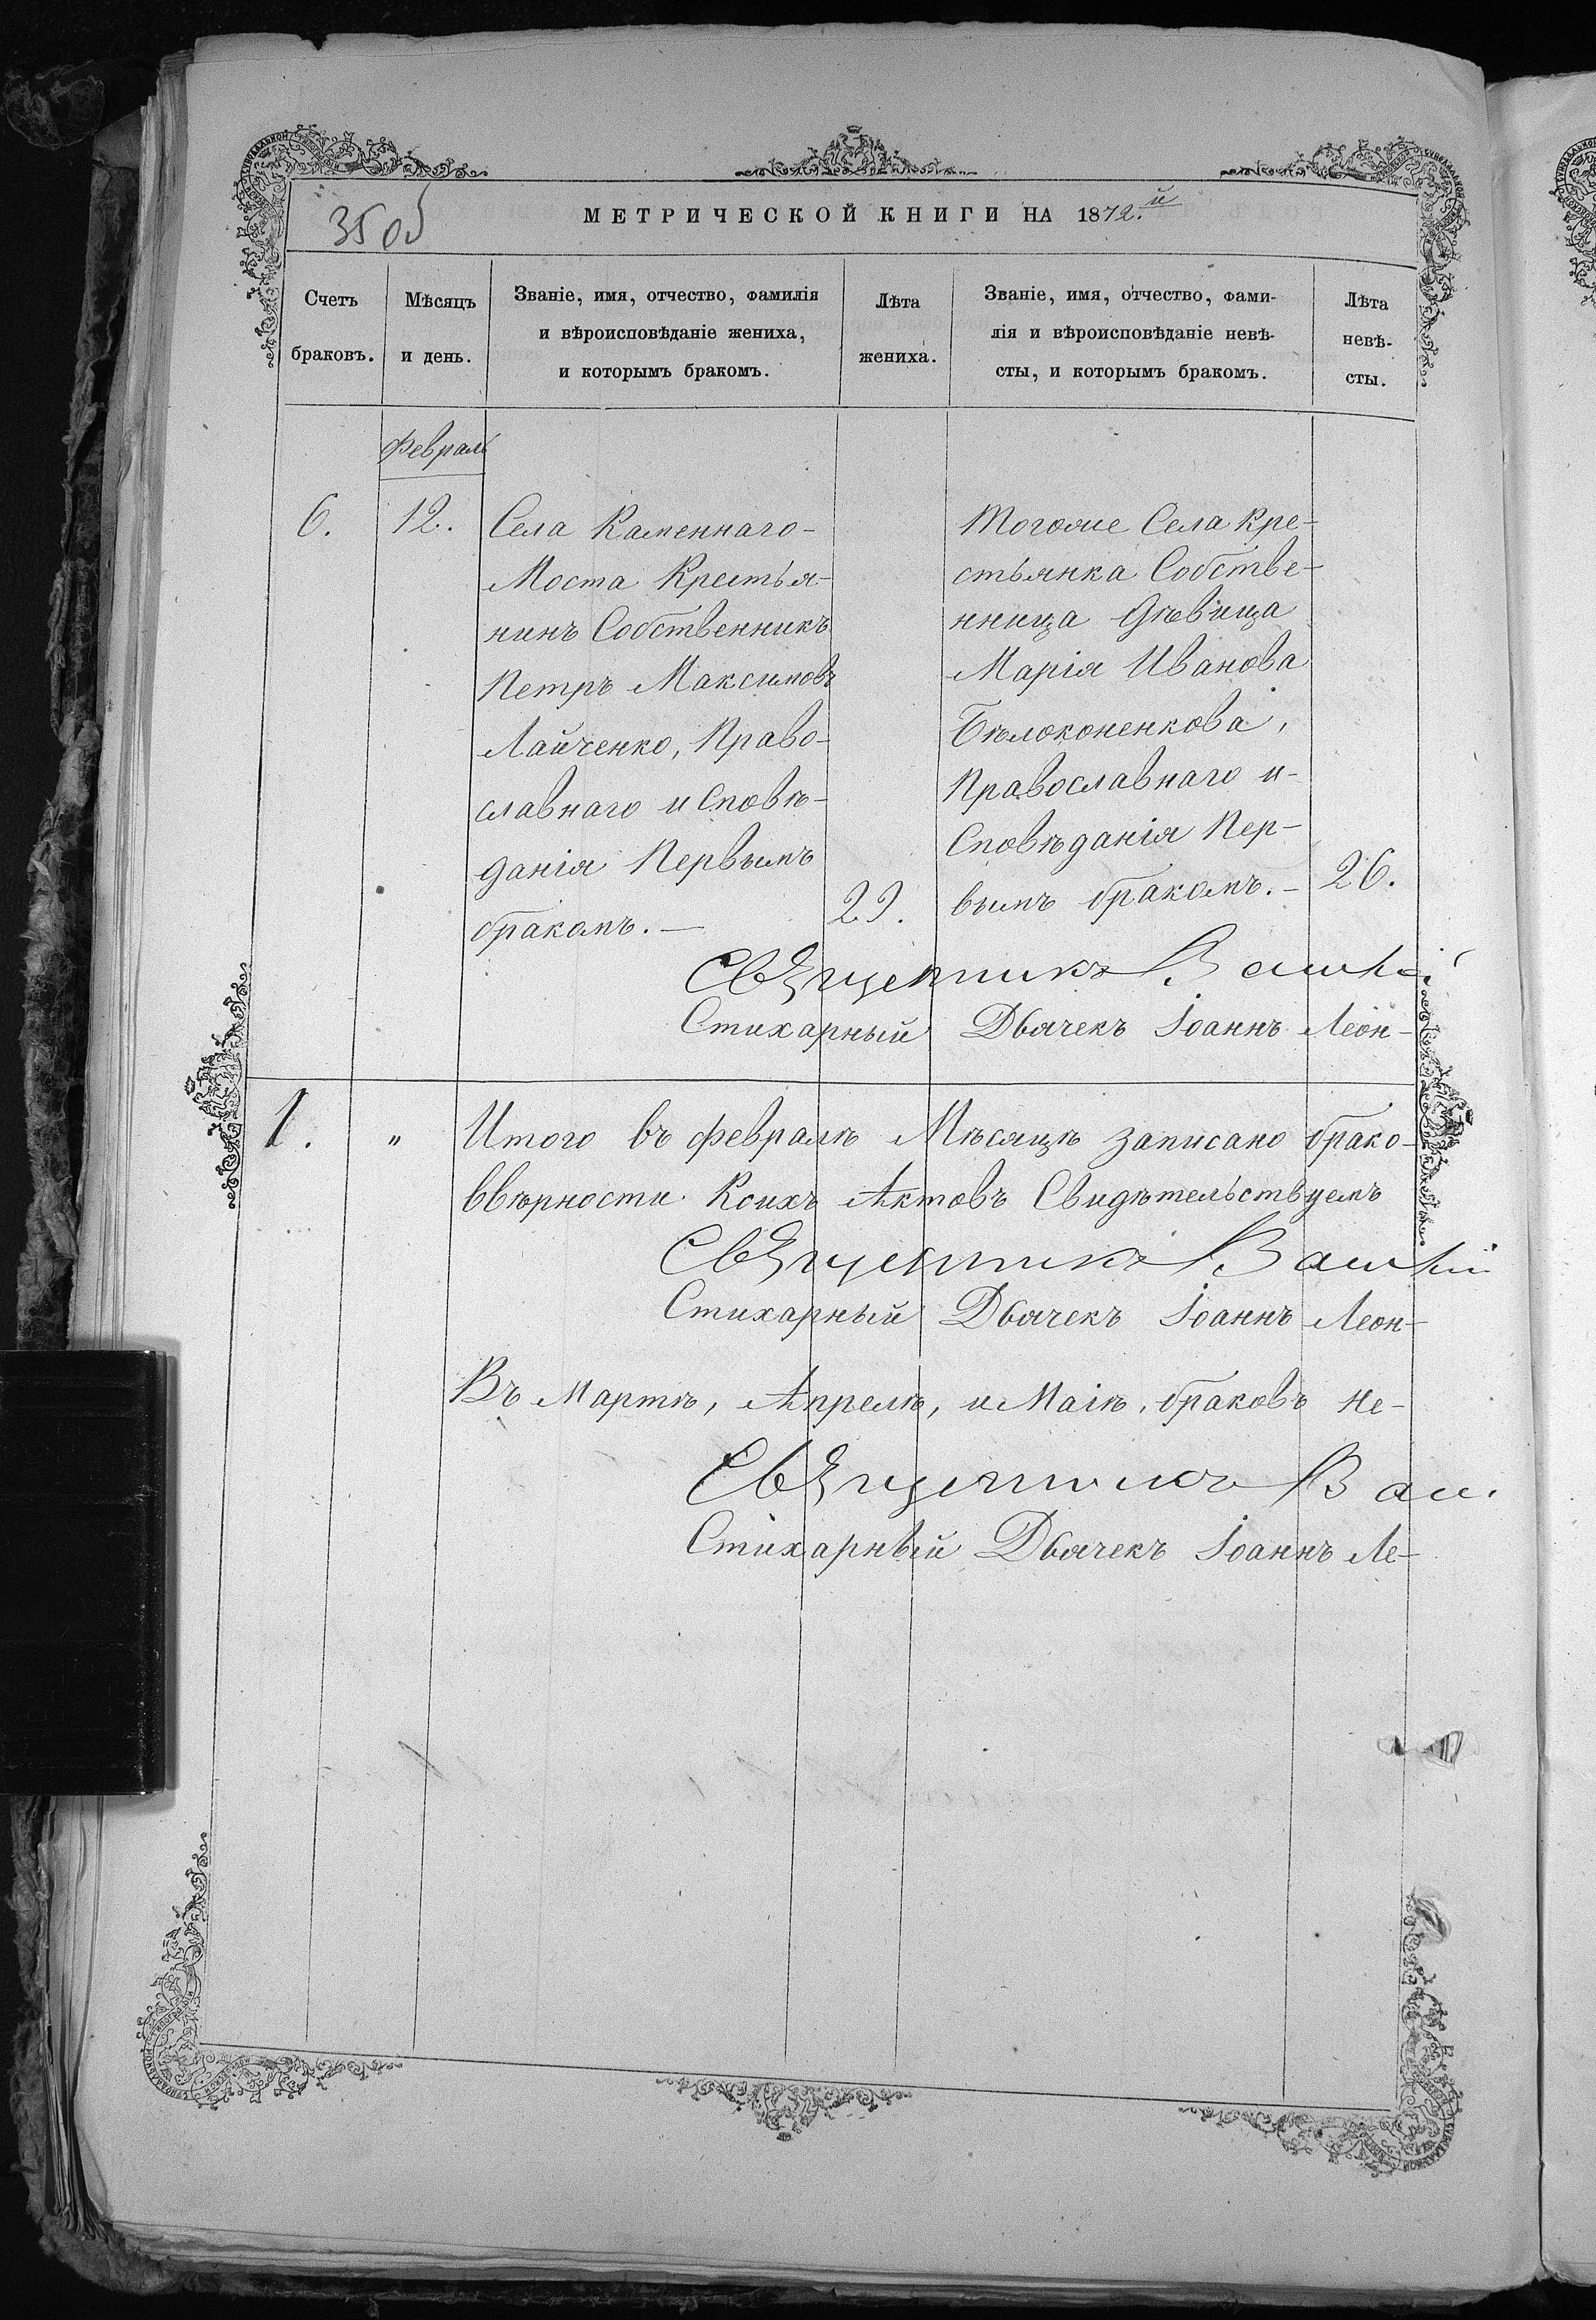 35об
МЕТРИЧЕСКОЙ КНИГИ НА 1872.й
Счетъ браковъ.
Мѣсяцъ и день.
Званіе, имя, отчество, фамилія
и вѣроисповѣданіе жениха,
и которымъ бракомъ.
Лѣта жениха.
Званіе, имя, отчество, фами-
лія и вѣроисповѣданіе невѣ-
сты, и которымъ бракомъ.
Лѣта невѣ-
сты.
Февраль
6.
12.
Села Каменнаго-
Моста Крестья-
нинъ Собственникъ
Петръ Максимовъ
Лайченко, Право-
славнаго исповѣ-
данія Первымъ
бракомъ. —
29.
Тогоже Села Кре-
стьянка Собстве-
нница Дѣвица
Марія Иванова
Бѣлоконенкова,
Православнаго и-
Сповѣданія Пер-
вымъ бракомъ. —
26.
Священникъ
Стихарный Дьячекъ Іоаннъ Леон-
1. " Итого въ Февралѣ Мѣсяцѣ записано брако-
ввѣрности Коихъ Актовъ Свидѣтельствуемъ
Священникъ
Стихарный Дьячекъ Іоаннъ Леон-
Въ Мартѣ, Апрелѣ, и Маіѣ, браковъ не-
Священникъ
Стихарный Дьячекъ Іоаннъ Ле-